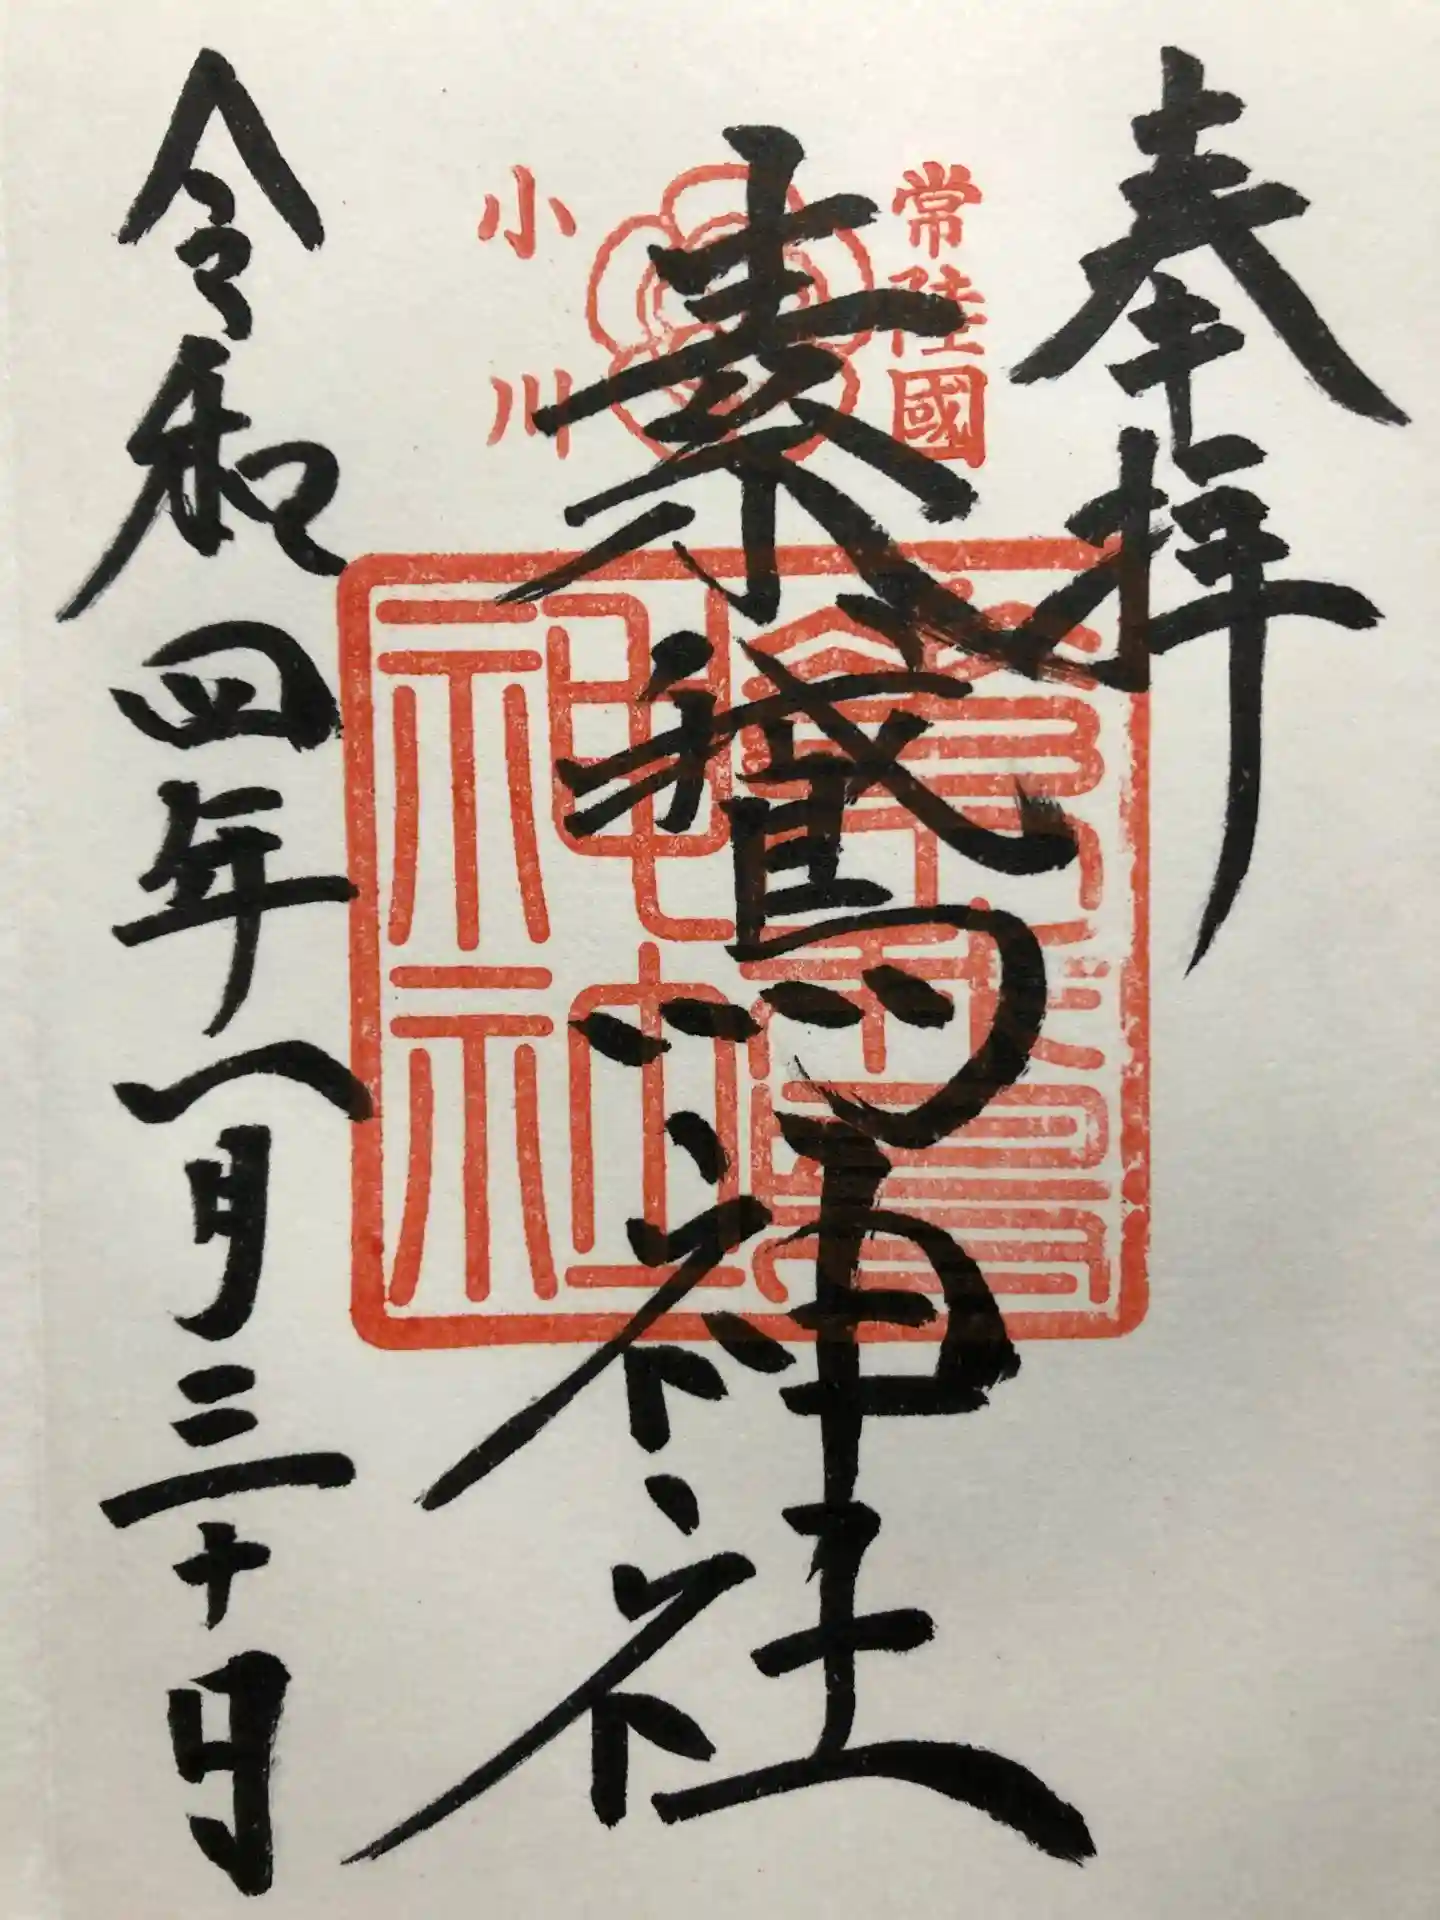 奉拝
常陸國
素鵞神社
小川
素鵞神社
令和四年八月三十日